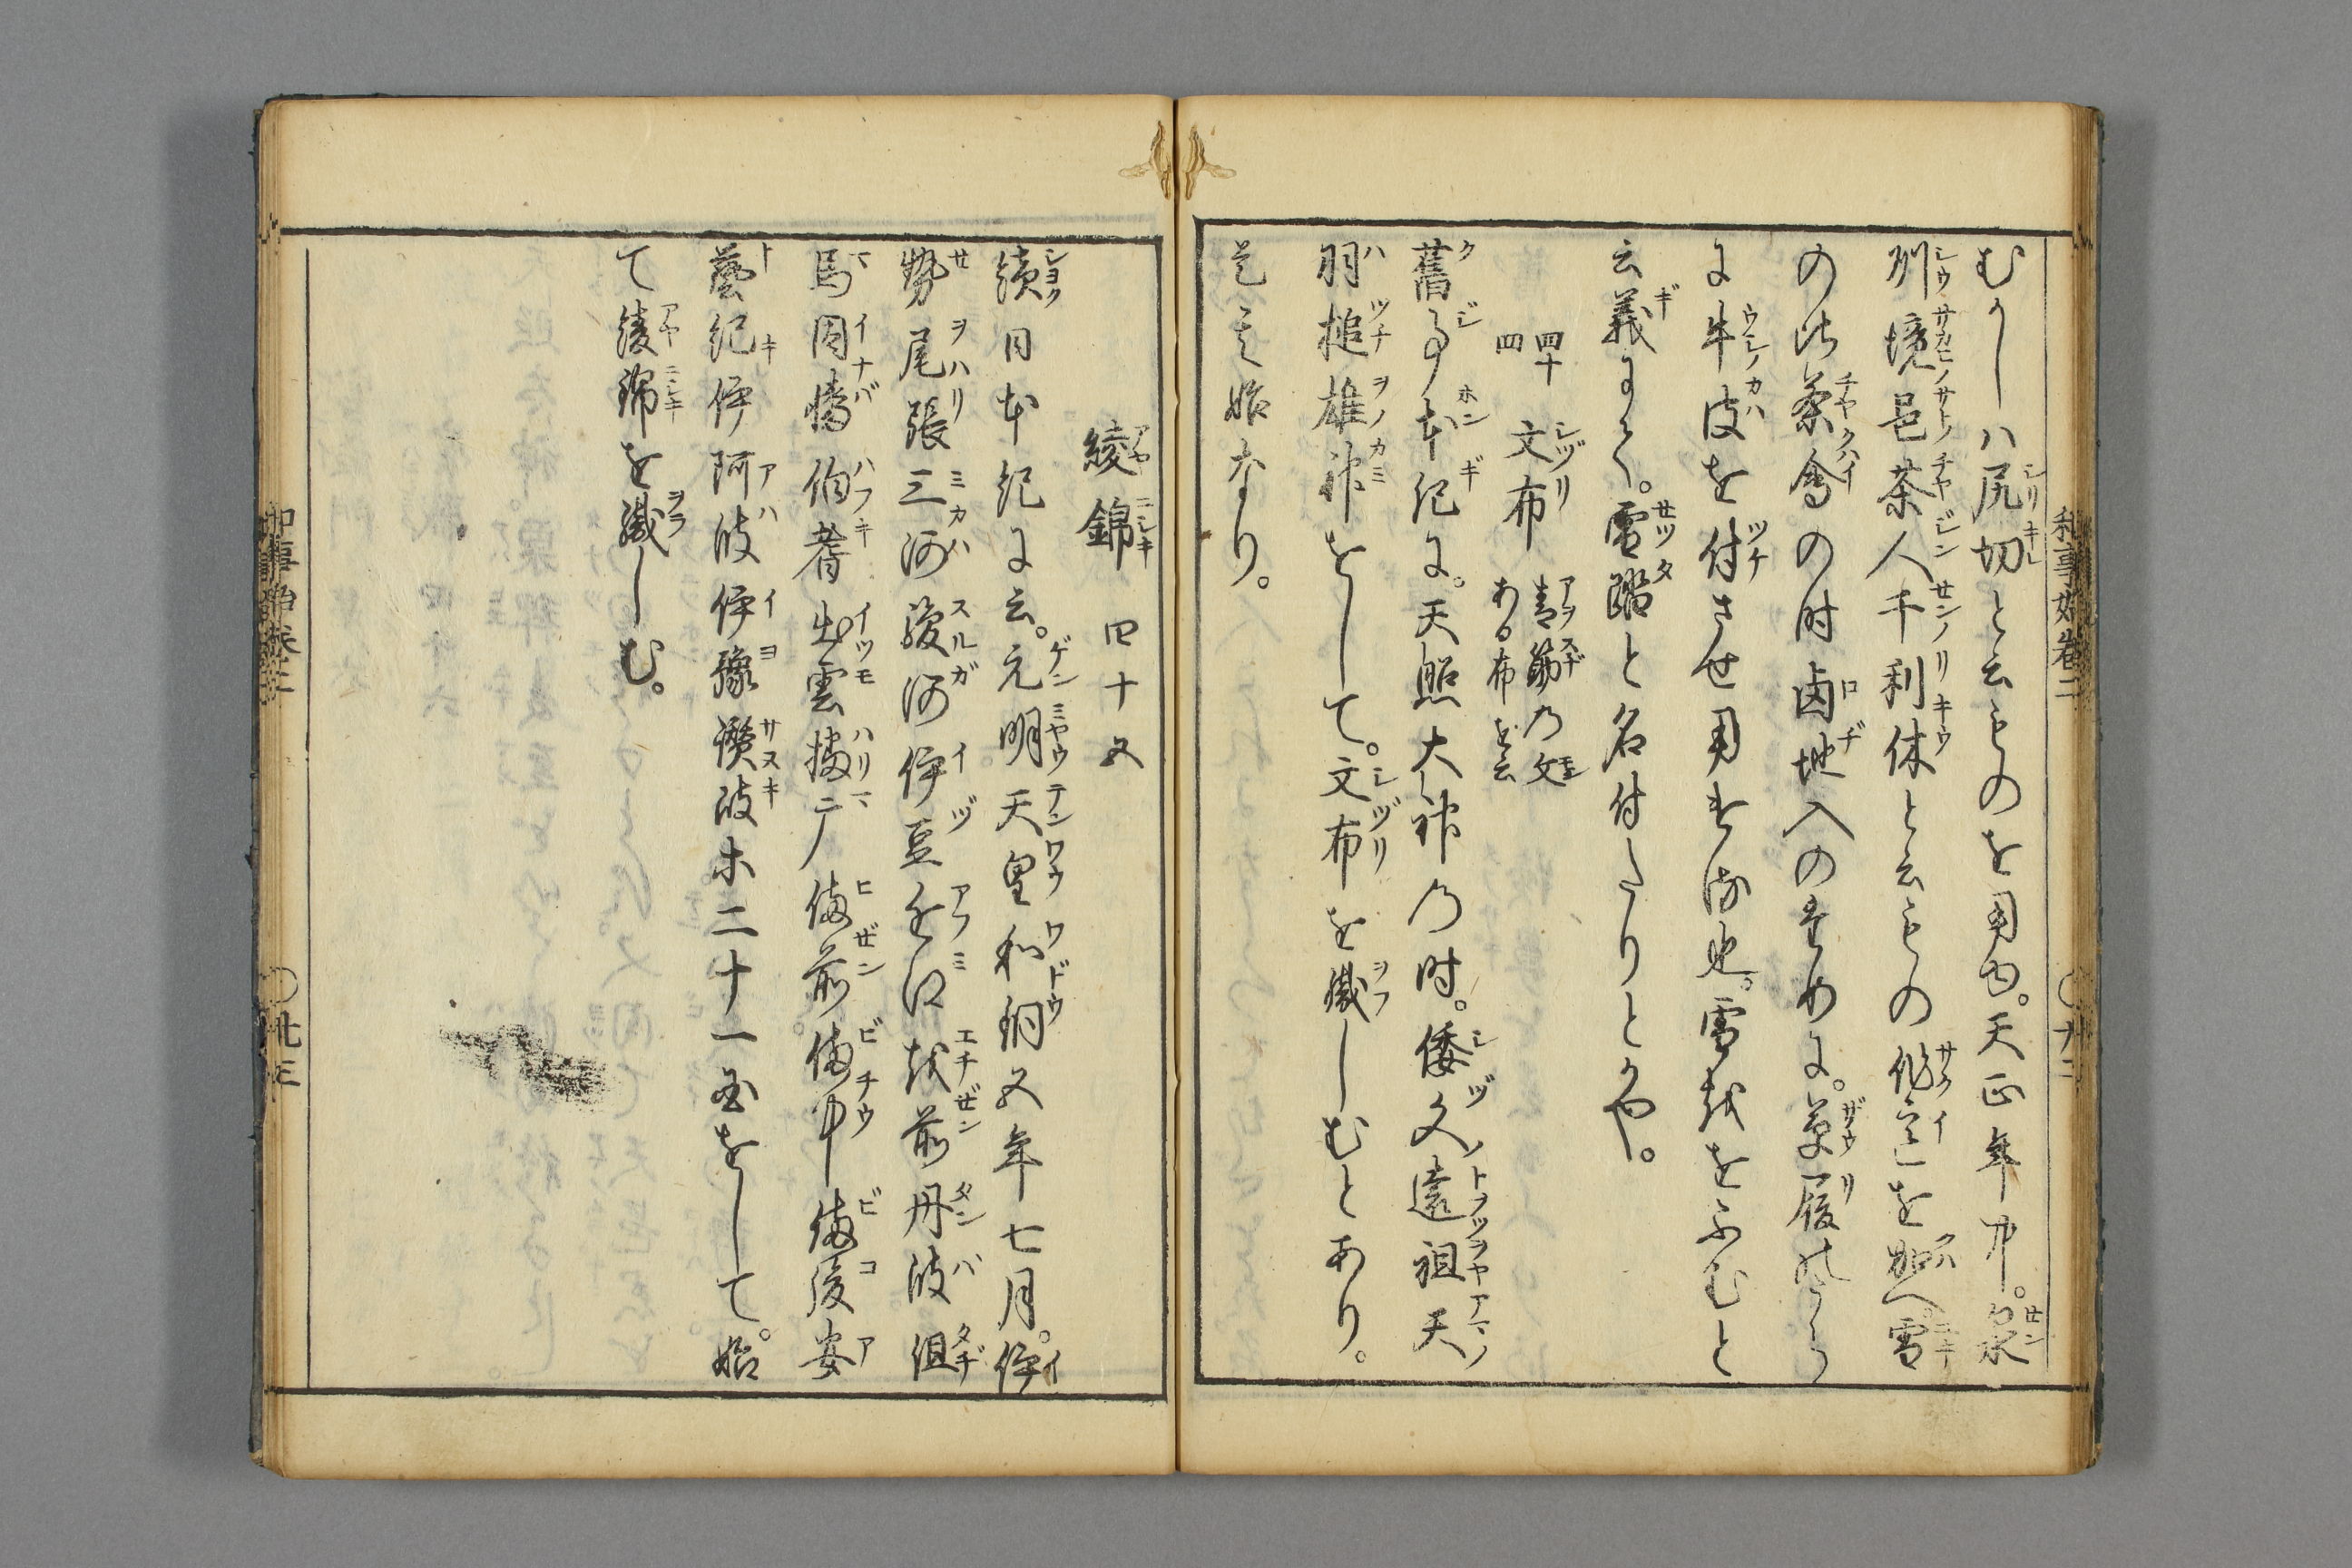 むかしハ尻切と云ものを用ゆ。天正年中。泉
州境邑茶人千利休と云もの作意を加へ。雪
の比茶會の時鹵地入のために。草履のうら
に牛皮を付させ用ける也。雪戝をふむと
云義にて。雪踏と名付たりとかや。
四十四 文布 青筋乃文ある布を云
舊事本紀に。天照大神乃時。倭文遠祖天
羽槌雄神をして。文布を織しむとあり。
是其始なり。
和事始巻二
綾錦 四十五
續日本紀に云。元明天皇和銅五年七月。伊
勢尾張三河駿河伊豆近江越前丹波但
馬因幡伯耆出雲播广備前。備中備後安
藝紀伊阿波伊豫讃岐ホ二十一国をして。始
て綾錦を織しむ。
和事始巻二
〇廿三